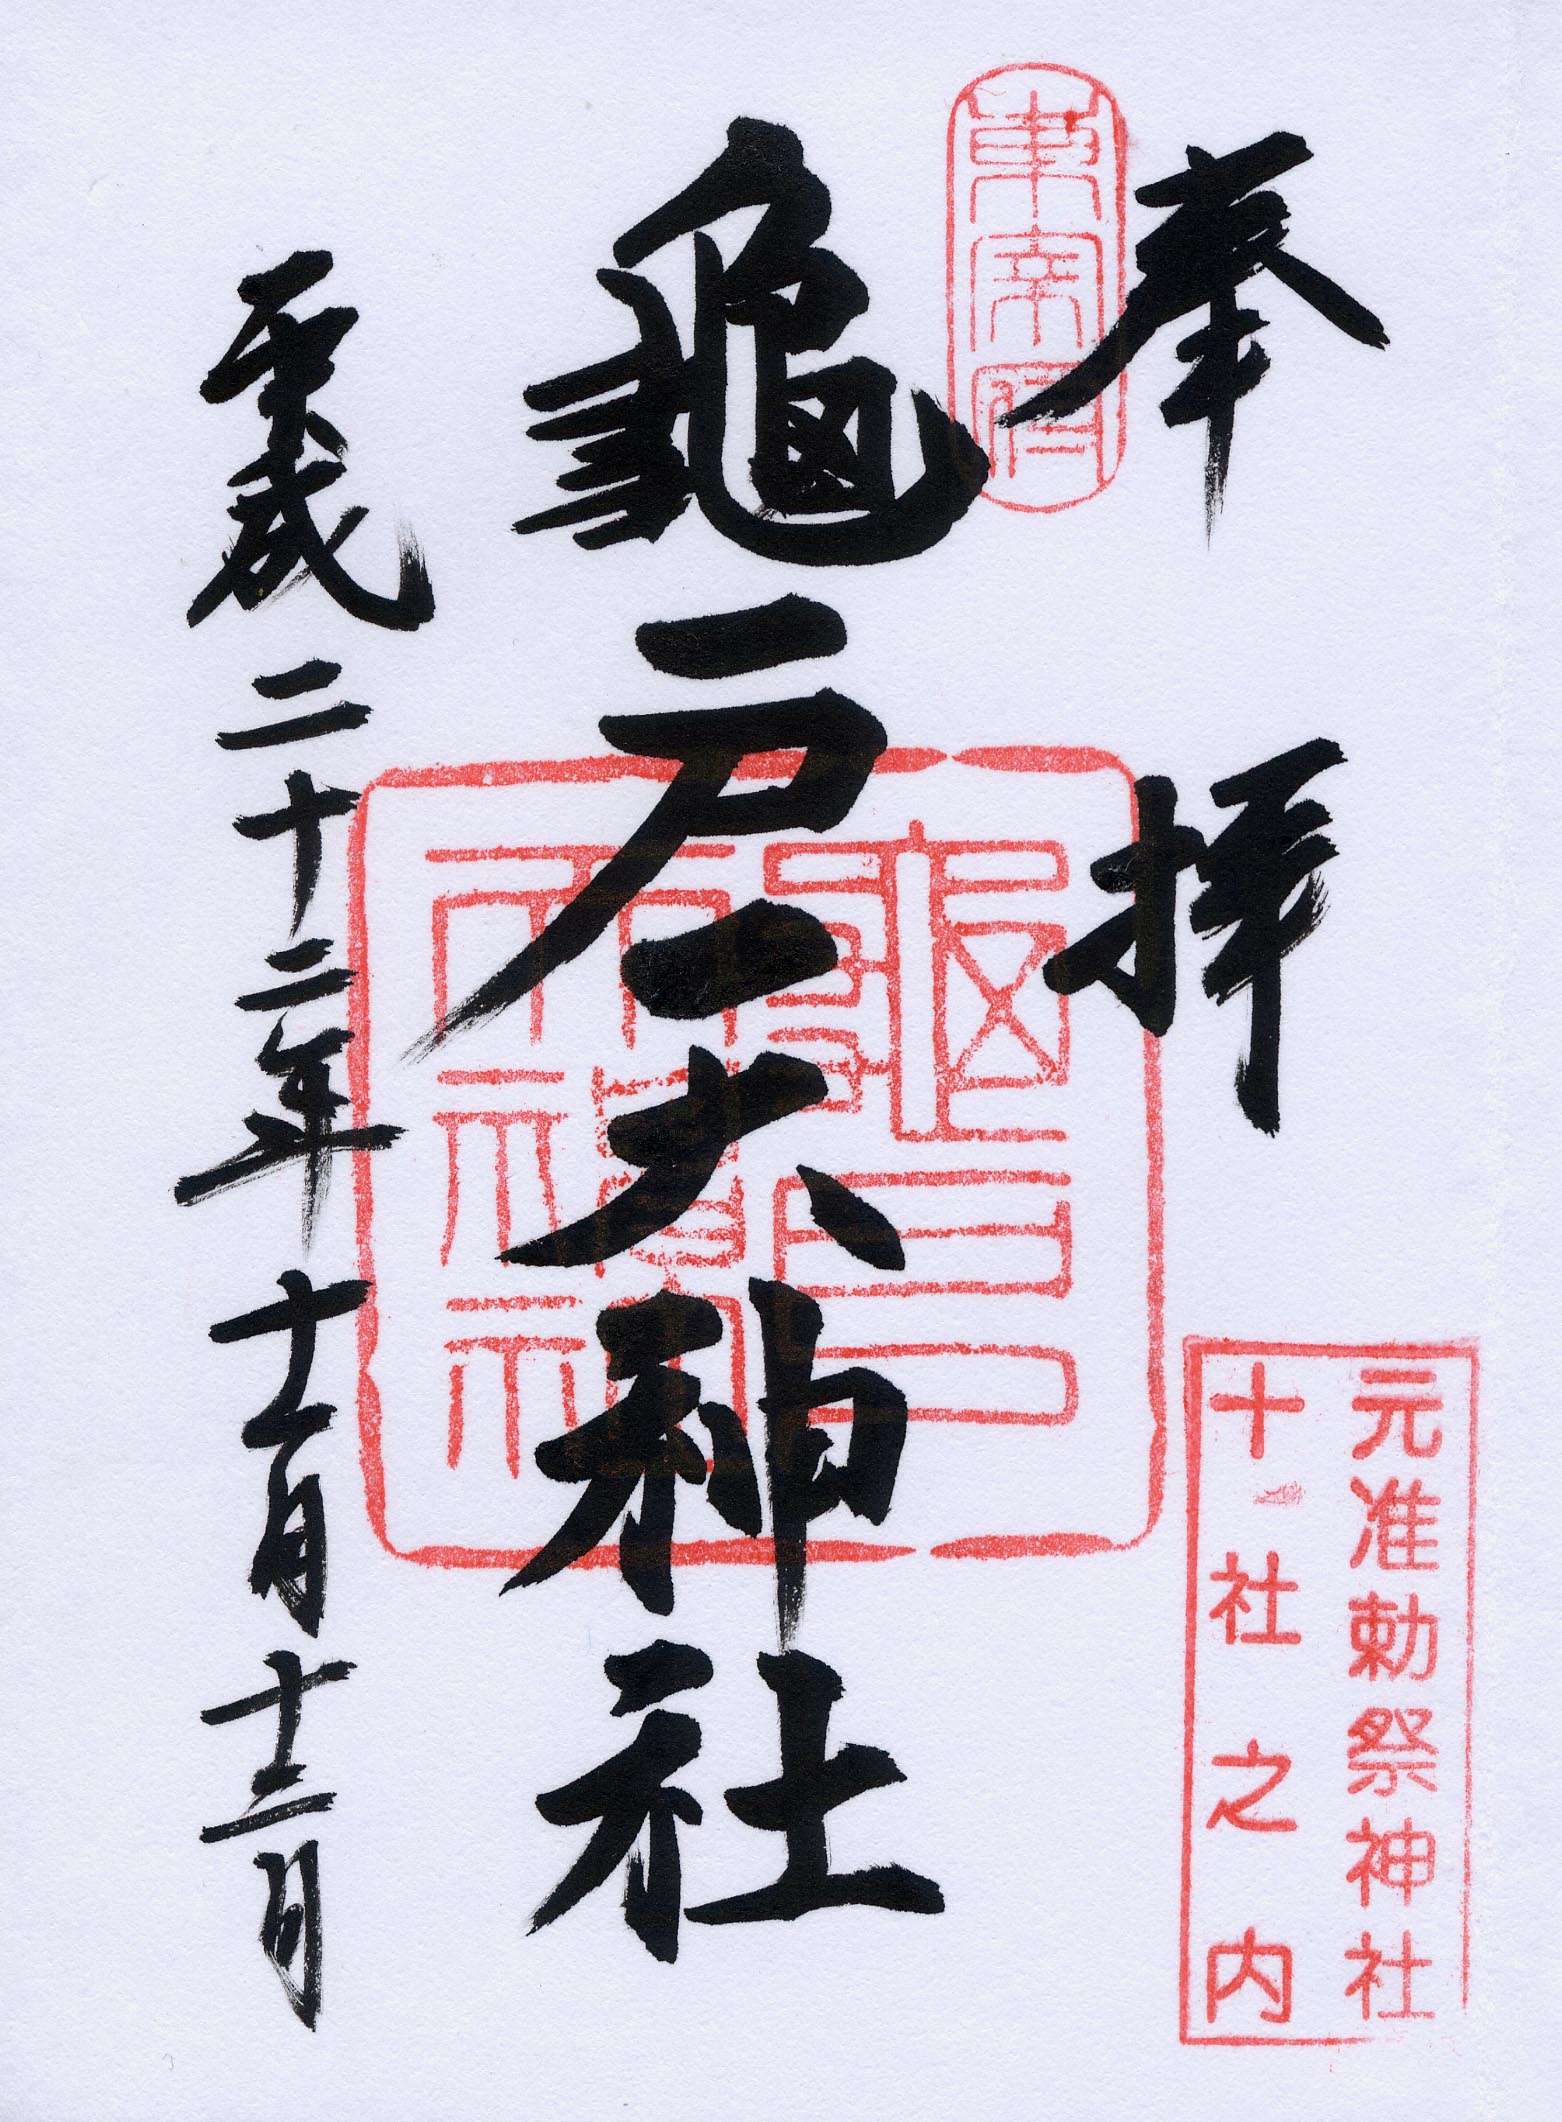 奉拝
東宰府
元准勅祭神社
十社之内
龜戸天神社
龜戸天神社
平成二十二年十一月十三日